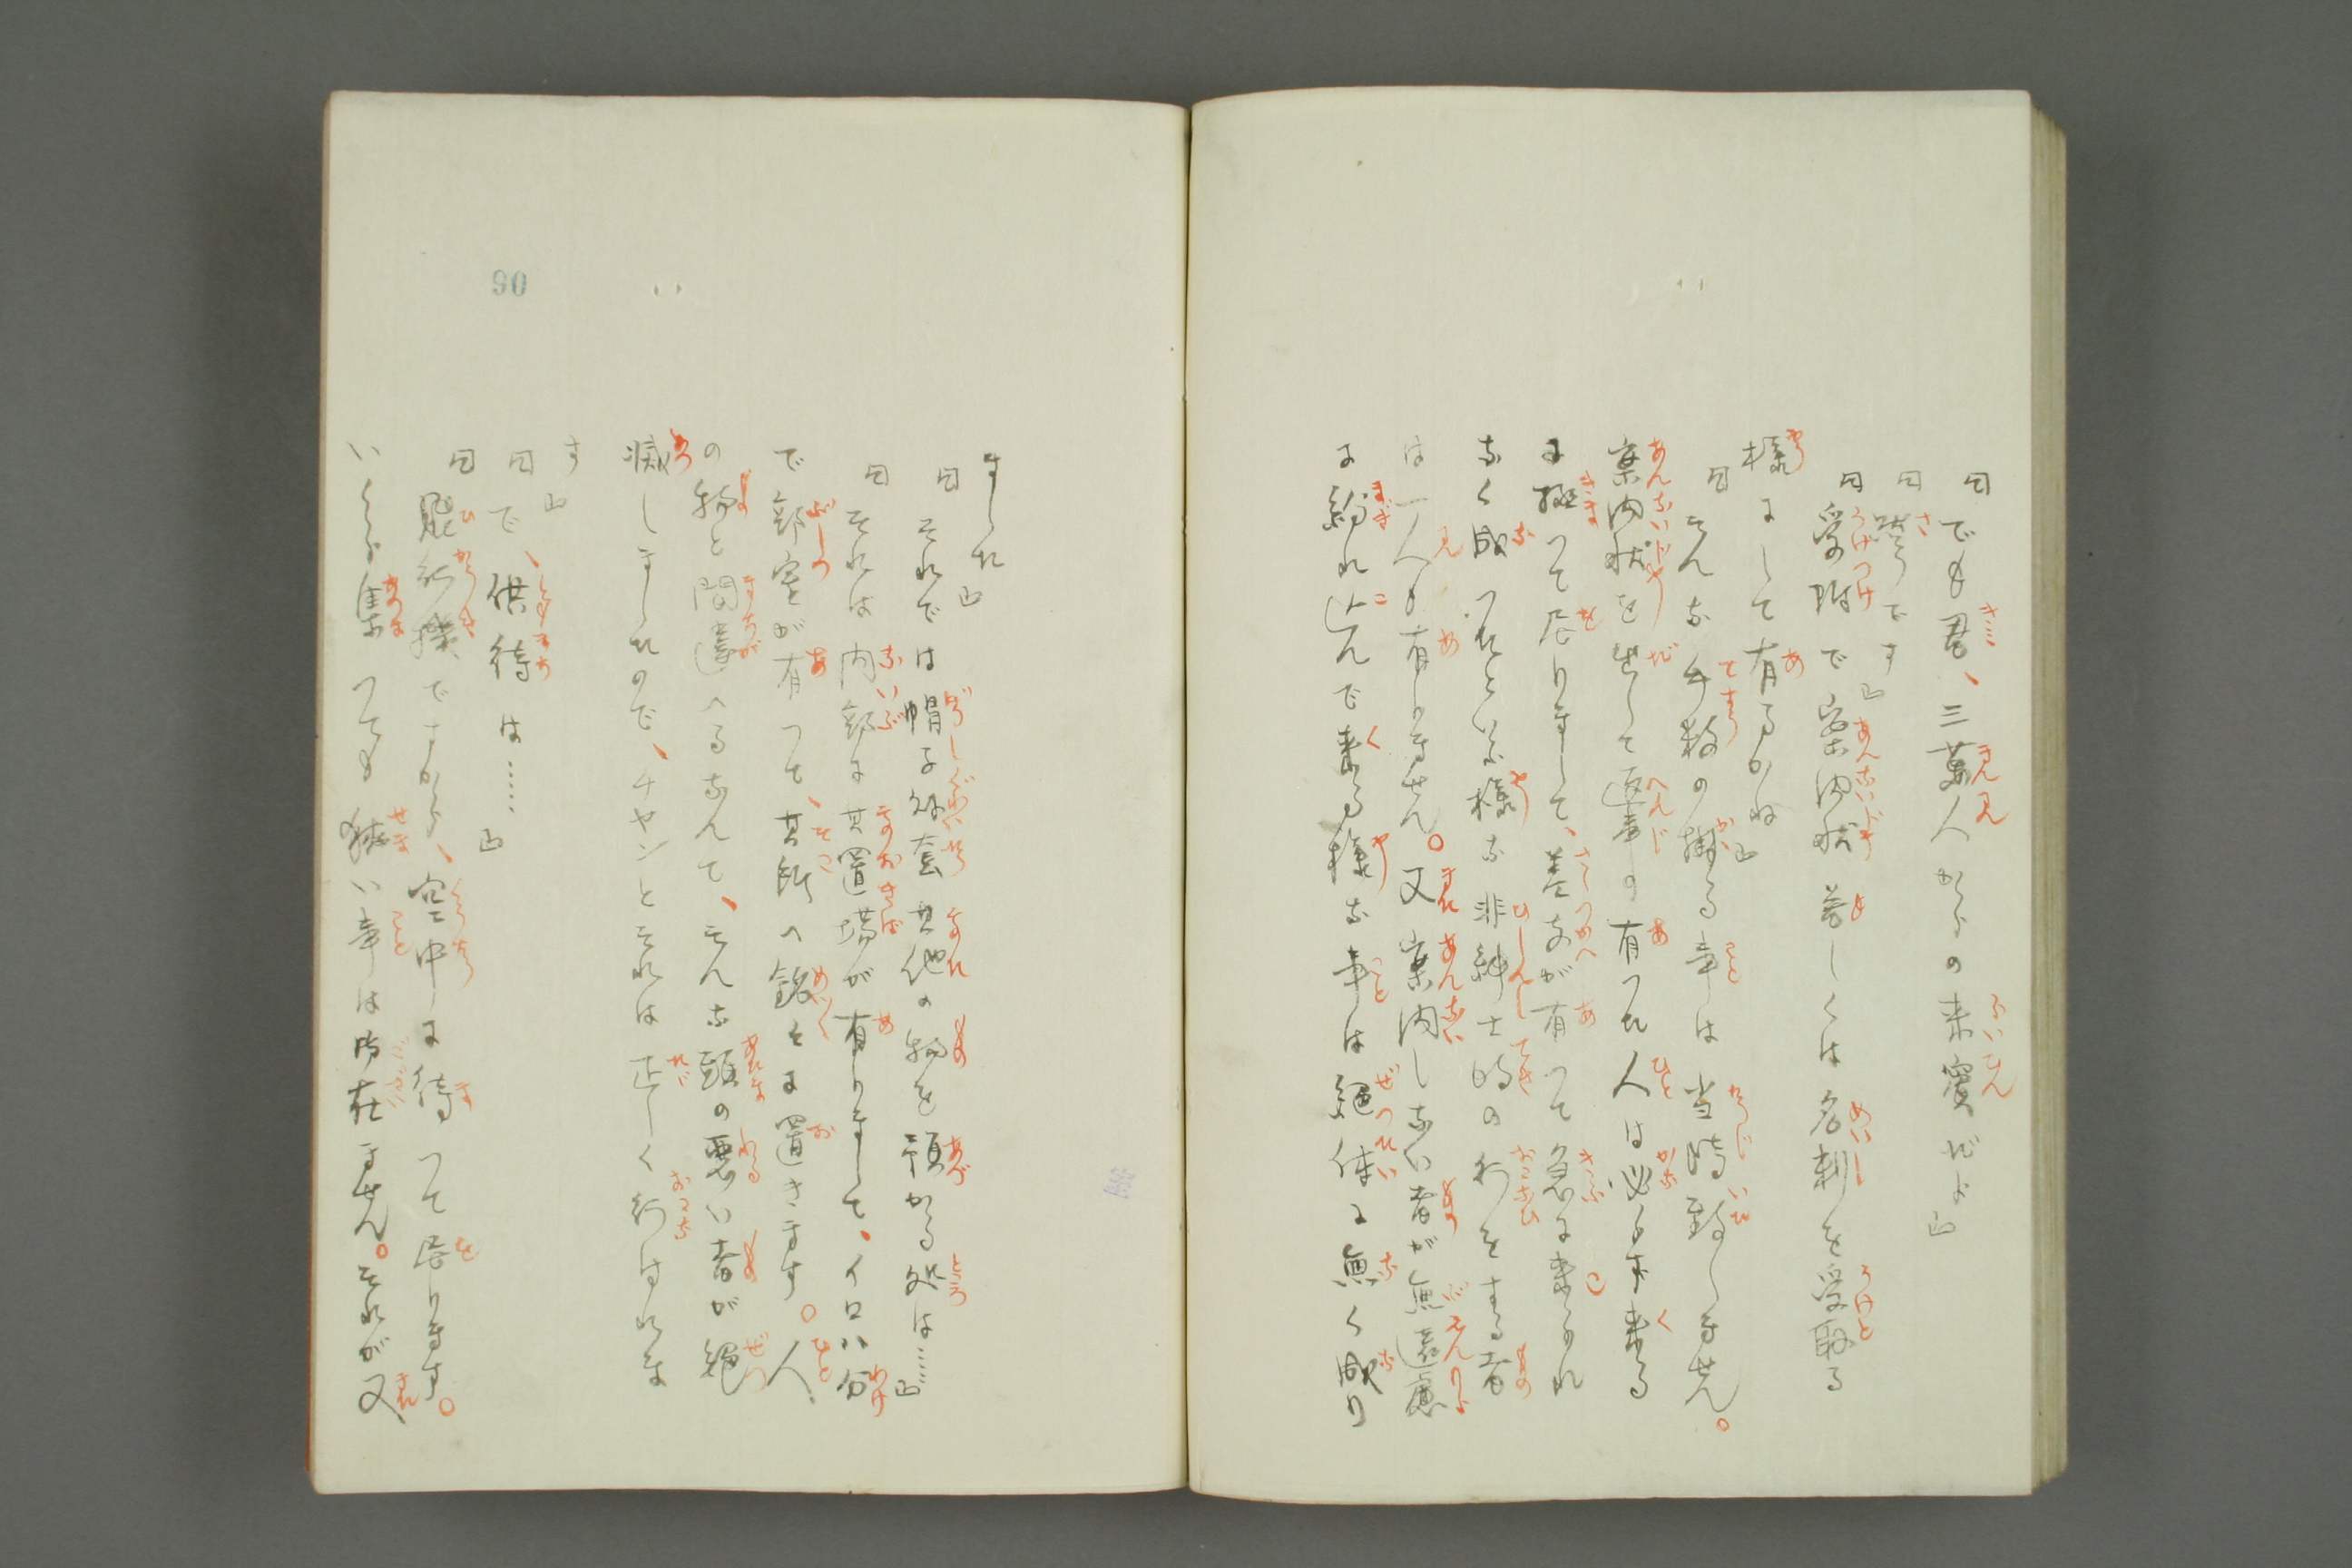 「でも君、三萬人からの来賓だよ」
「左様です」
「受附で案内状若しくは名刺を受取る
様にして有るかね」
「そんな手数の掛る事は当時致しません。
案内状を出して返事の有つた人は必らず来る
に極つて居りまして、差支が有つて急に来られ
なく成つたといふ様な非紳士的の行をする者
は一人も有りません。又案内しない者が無遠慮
に紛れ込んで来る様な事は絶体に無く成り
ました」
「それでは帽子外套其他の物を預かる処は……」
「それは内部に其置場が有りまして、イロハ分
で部室が有つて、其所へ銘々に置きます。人
の物と間違へるなんて、そんな頭の悪い者が絶
滅しましたので、チヤンとそれは正しく行はれま
す」
「で、供待は……」
「飛行機ですから、空中に待つて居ります。
いくら集つても狭い事は御在ません。それが又
90